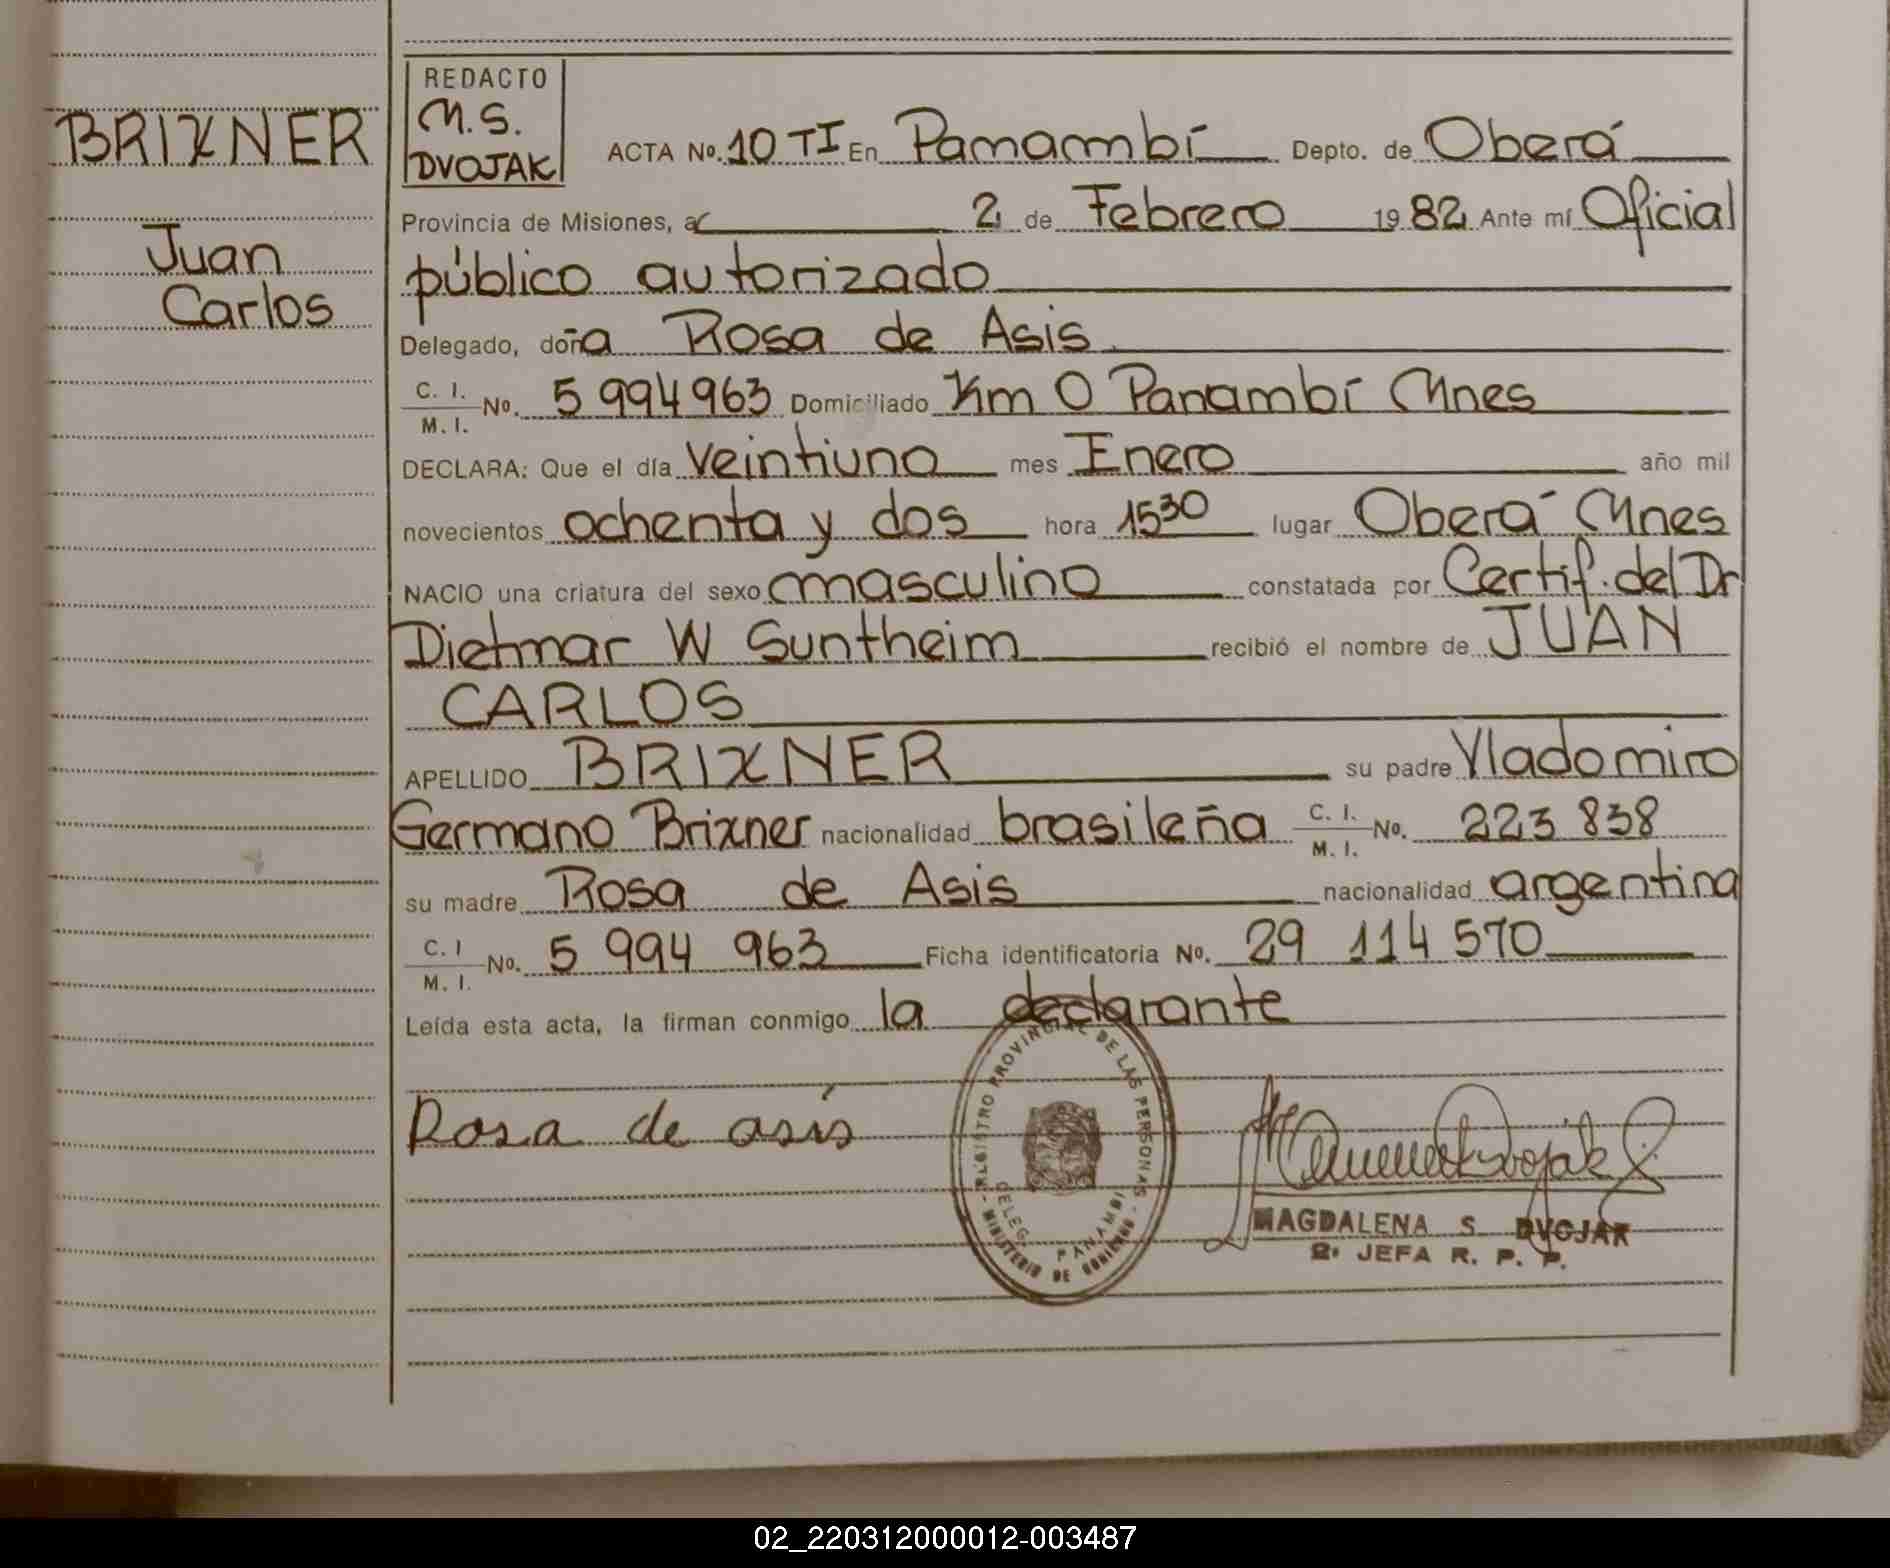 BRIXNER
Juan
Carlos
REDACTO
M.S.
DVOJAK
ACTA No. 10 TI En Panambí Depto. de Oberá
Provincia de Misiones, a 2 de Febrero 1982 Ante mí Oficial
público autorizado
Delegado, doña Rosa de Asis
C. I.
M. I. No. 5 994 963 Domiciliado Km 0 Panambí Mnes
DECLARA: Que el día veintiuno mes Enero año mil
novecientos ochenta y dos hora 1530 lugar Oberá Mnes
NACIO una criatura del sexo masculino constatada por Certif. del Dr
Dietmar W Suntheim recibió el nombre de JUAN
CARLOS
APELLIDO BRIXNER su padre Vladomiro
Germano Brixner nacionalidad brasileña C. I. M. I. No. 223 838
su madre Rosa de Asis nacionalidad argentina
C. I
M. I. No. 5 994 963 Ficha identificatoria No. 29 114 570
Leída esta acta, la firman conmigo la declarante
Rosa de asís
REGISTRO PROVINCIAL DE LAS PERSONAS
DELEG. PANAMBI
- MINISTERIO DE GOBIERNO -
MAGDALENA S. DVOJAK
2. JEFA R. P. P.
02_220312000012-003487